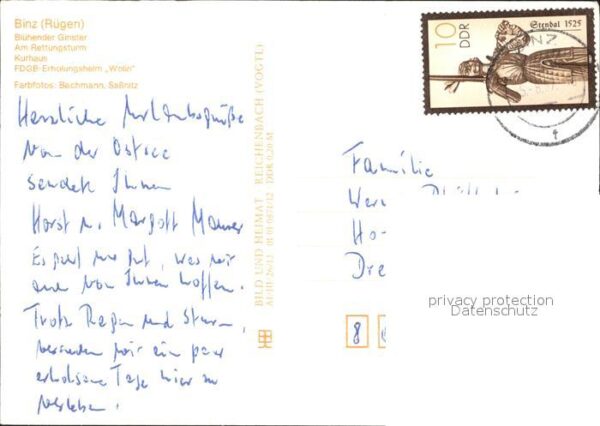 Binz (Rügen)
Blühender Ginster
Am Rettungsturm
Kurhaus
FDGB-Erholungsheim „Wolin"
Farbfotos: Bachmann, Saßnitz
Herzliche Urlaubsgrüße
von der Ostsee
sendet Ihnen
Horst u. Margott
Es geht uns gut, was wir
auch von Ihnen hoffen.
Trotz Regen und Sturm,
wir ein paar
erholsame Tage hier zu
verleben.
BILD UND HEIMAT REICHENBACH (VOGTL)
DDR 0,20 M
10
DDR
Stendal 1525
Familie
Wer
Ho
Dre
8
privacy protection
Datenschutz